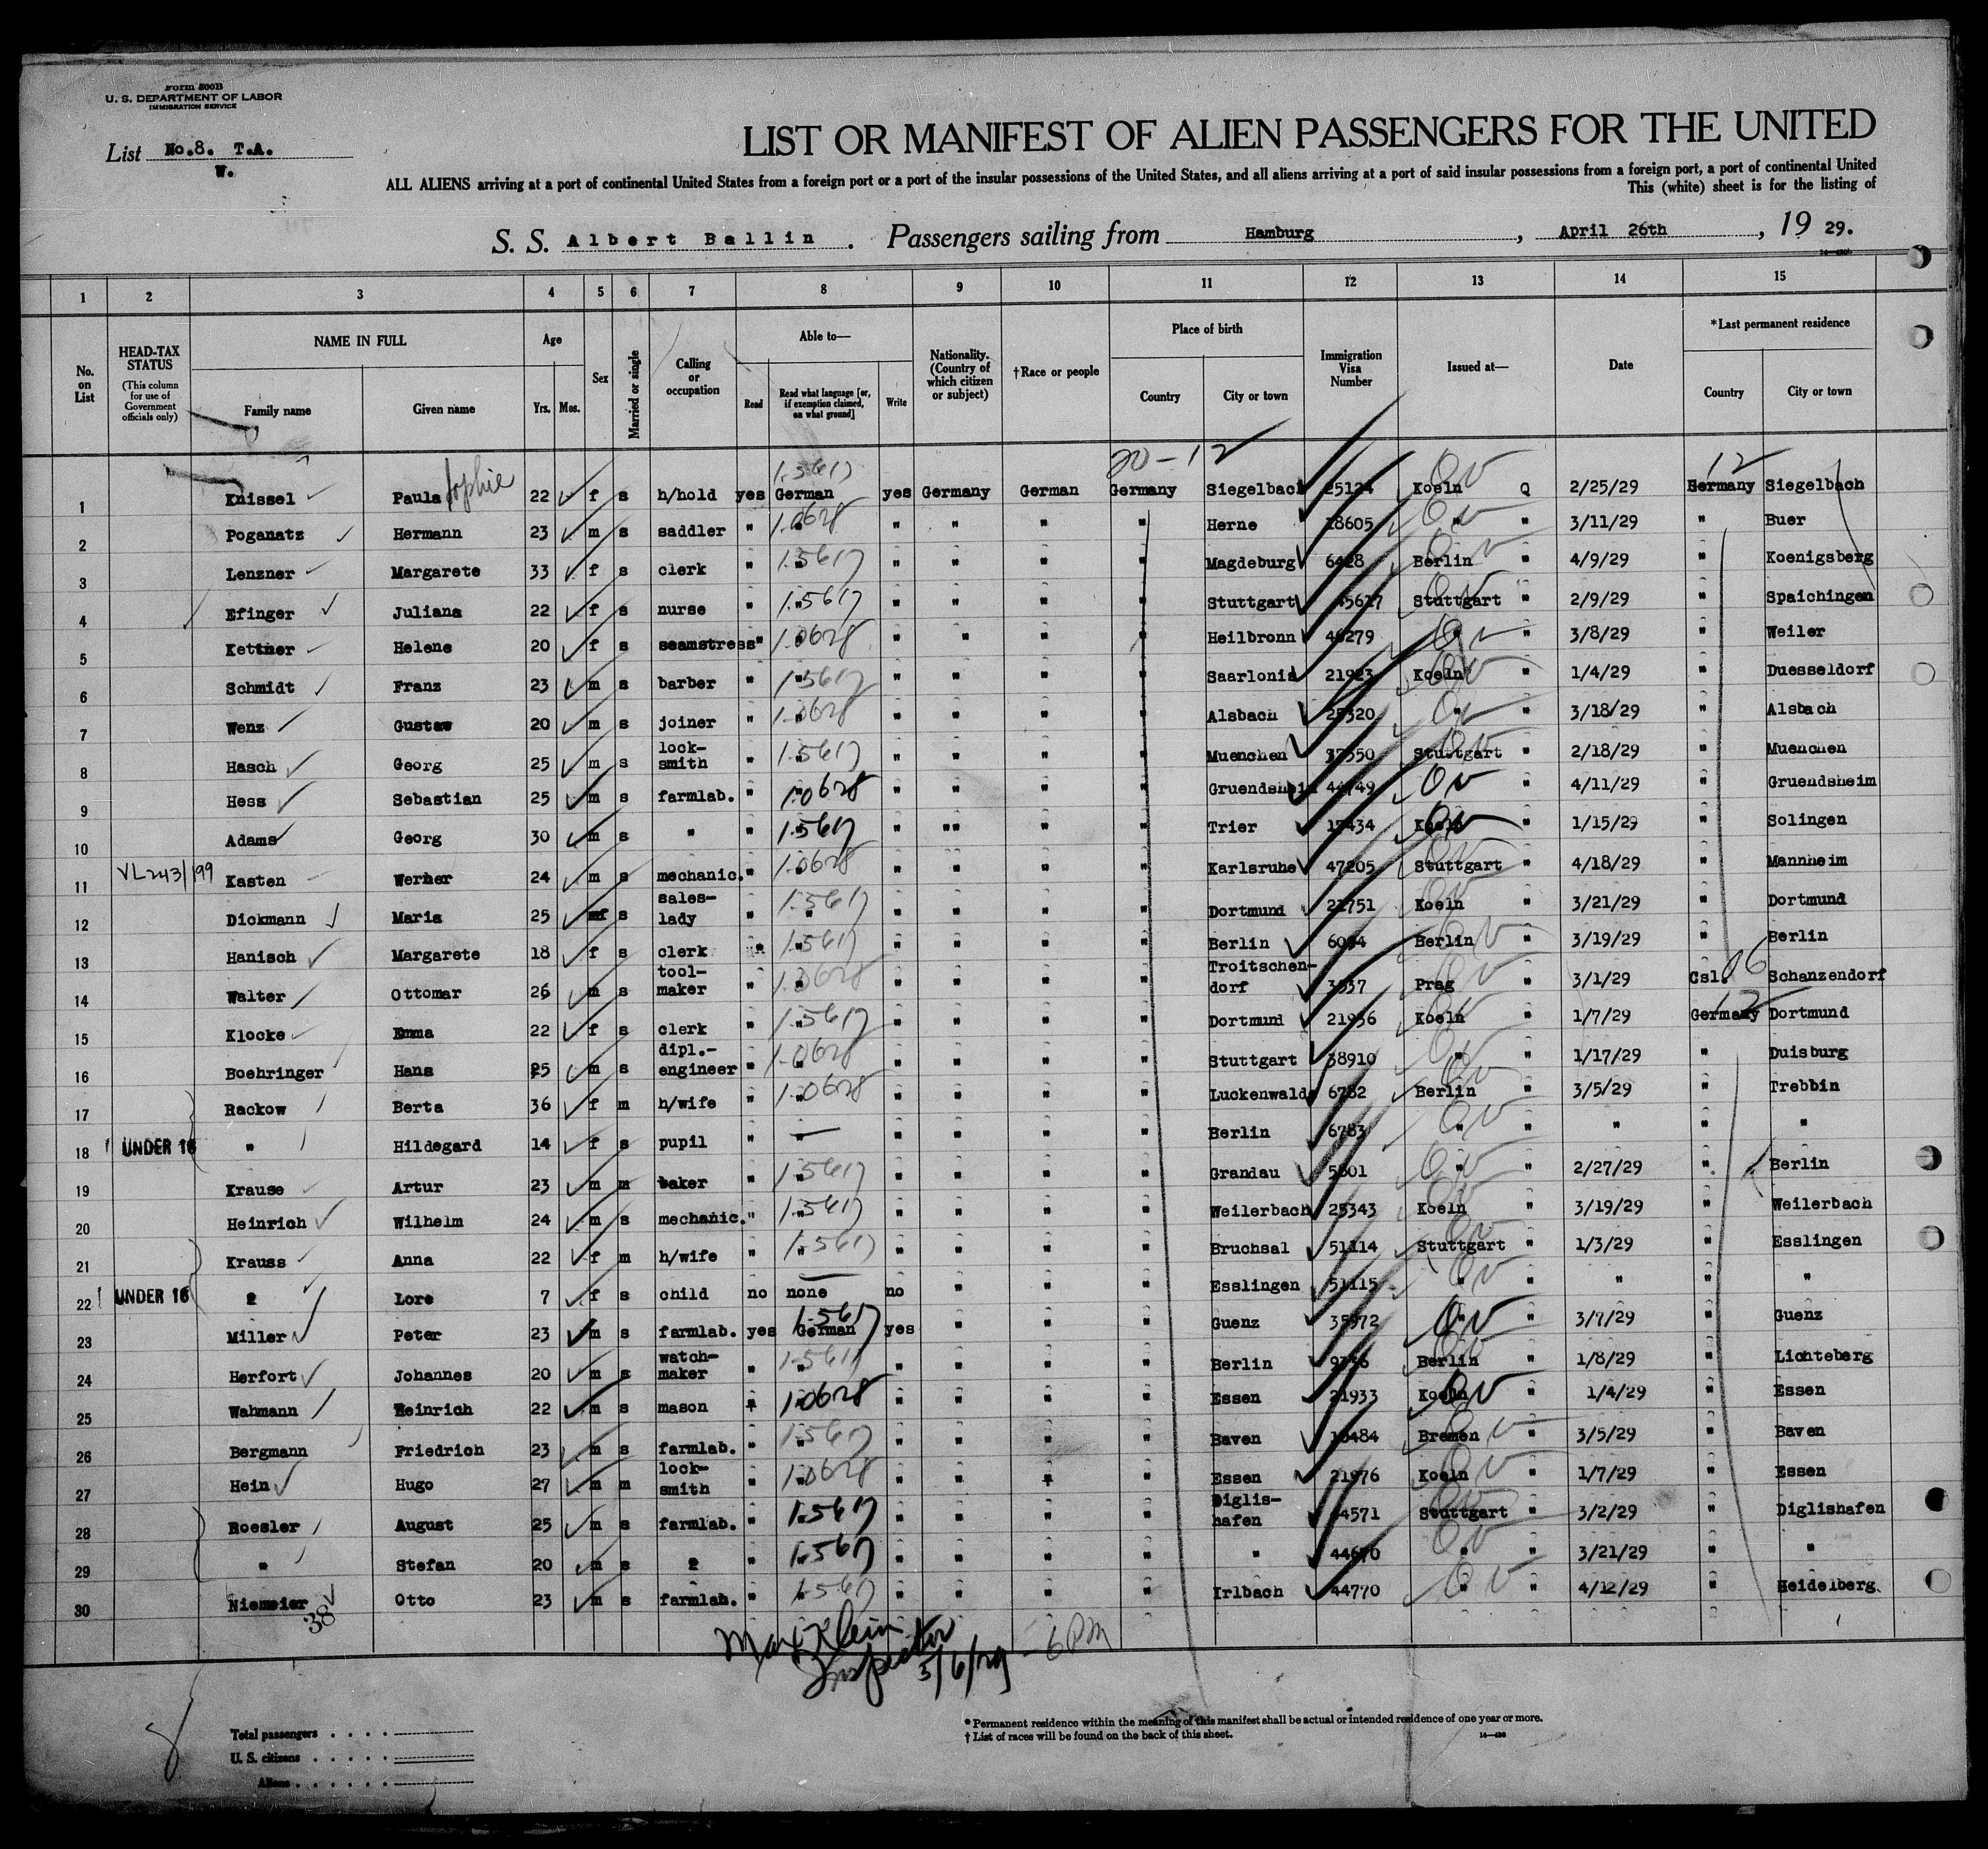 Form 500B
U. S. DEPARTMENT OF LABOR
IMMIGRATION SERVICE
List No.8. T.A.
W.
LIST OR MANIFEST OF ALIEN PASSENGERS FOR THE UNITED
ALL ALIENS arriving at a port of continental United States from a foreign port or a port of the insular possessions of the United States, and all aliens arriving at a port of said insular possessions from a foreign port, a port of continental United
This (white) sheet is for the listing of
S. S. Albert Ballin . Passengers sailing from Hamburg , April 26th , 19 29.
1 2 3 4 5 6 7 8 9 10 11 12 13 14 15
No. on List
HEAD-TAX STATUS (This column for use of Government officials only)
NAME IN FULL Family name Given name
Age Yrs. Mos.
Sex
Married or single
Calling or occupation
Able to— Read Read what language [or, if exemption claimed, on what ground] Write
Nationality. (Country of which citizen or subject)
†Race or people
Place of birth Country City or town
Immigration Visa Number
Issued at—
Date
*Last permanent residence Country City or town
20-12 12
1 Knissel Paula Sophie 22 f s h/hold yes German yes Germany German Germany Siegelbach 25124 Koeln Q 2/25/29 Germany Siegelbach
2 Poganatz Hermann 23 m s saddler " 1-0628 " " " " Herne 18605 " " 3/11/29 " Buer
3 Lenzner Margarete 33 f s clerk " 1-5617 " " " " Magdeburg Berlin " 4/9/29 " Koenigsberg
4 Efinger Juliana 22 f s nurse " 1-5617 " " " " Stuttgart Stuttgart " 2/9/29 " Spaichingen
5 Kettner Helene 20 f s seamstress " 1-0628 " " " " Heilbronn 46279 " " 3/8/29 " Weiler
6 Schmidt Franz 23 m s barber " 1-5617 " " " " Saarlouis 21923 Koeln " 1/4/29 " Duesseldorf
7 Wenz Gustav 20 m s joiner " 1-0628 " " " " Alsbach 25320 " " 3/18/29 " Alsbach
8 Hasch Georg 25 m s lock-smith " 1-5617 " " " " Muenchen Stuttgart " 2/18/29 " Muenchen
9 Hess Sebastian 25 m s farmlab. " 1-0628 " " " " Gruendsheim 44749 " " 4/11/29 " Gruendsheim
10 Adams Georg 30 m s " " 1-5617 " "" " " Trier Koeln " 1/15/29 " Solingen
11 VL243/199 Kasten Werner 24 m s mechanic. " 1-0628 " " " " Karlsruhe 47205 Stuttgart " 4/18/29 " Mannheim
12 Dickmann Maria 25 f s sales-lady " 1-5617 " " " " Dortmund Koeln " 3/21/29 " Dortmund
13 Hanisch Margarete 18 f s clerk " 1-5617 " " " " Berlin Berlin " 3/19/29 " Berlin
14 Walter Ottomar 26 m s tool-maker " 1-0628 " " " " Troitschen-dorf Prag " 3/1/29 Csl. 06 Schanzendorf
15 Klocke Emma 22 f s clerk " 1-5617 " " " " Dortmund 21936 Koeln " 1/7/29 Germany 12 Dortmund
16 Boehringer Hans 25 m s dipl.-engineer " 1-0628 " " " " Stuttgart 38910 " " 1/17/29 " Duisburg
17 Rackow Berta 36 f m h/wife " 1-0628 " " " " Luckenwalde 6782 Berlin " 3/5/29 " Trebbin
18 UNDER 16 " Hildegard 14 f s pupil " " " " " " Berlin 6783 " " " " "
19 Krause Artur 23 m m baker " 1-5617 " " " " Grandau 5801 " " 2/27/29 " Berlin
20 Heinrich Wilhelm 24 m s mechanic. " 1-5617 " " " " Weilerbach 25343 Koeln " 3/19/29 " Weilerbach
21 Krauss Anna 22 f m h/wife " 1-5617 " " " " Bruchsal 51114 Stuttgart " 1/3/29 " Esslingen
22 UNDER 16 2 Lore 7 f s child no none no " " " Esslingen 51115 " " " " "
23 Miller Peter 23 m s farmlab. yes German 1-5617 yes " " " Guenz 35972 " " 3/7/29 " Guenz
24 Herfort Johannes 20 m s watch-maker " 1-5617 " " " " Berlin Berlin " 1/8/29 " Lichteberg
25 Wahmann Heinrich 22 m s mason " 1-0628 " " " " Essen 21933 Koeln " 1/4/29 " Essen
26 Bergmann Friedrich 23 m s farmlab. " 1-5617 " " " " Baven Bremen " 3/5/29 " Baven
27 Hein Hugo 27 m m lock-smith " 1-0628 " " " " Essen 21976 Koeln " 1/7/29 " Essen
28 Roesler August 25 m s farmlab. " 1-5617 " " " " Diglis-hafen 44571 Stuttgart " 3/2/29 " Diglishafen
29 " Stefan 20 m s 2 " 1-5617 " " " " " 44670 " " 3/21/29 " "
30 Niemeier Otto 23 m s farmlab. " 1-5617 " " " " Irlbach 44770 " " 4/12/29 " Heidelberg.
38
Max Klein
Inspector
5/6/29 - 6 PM
Total passengers . . . .
U. S. citizens . . . . .
Aliens . . . . . .
* Permanent residence within the meaning of this manifest shall be actual or intended residence of one year or more.
† List of races will be found on the back of this sheet.